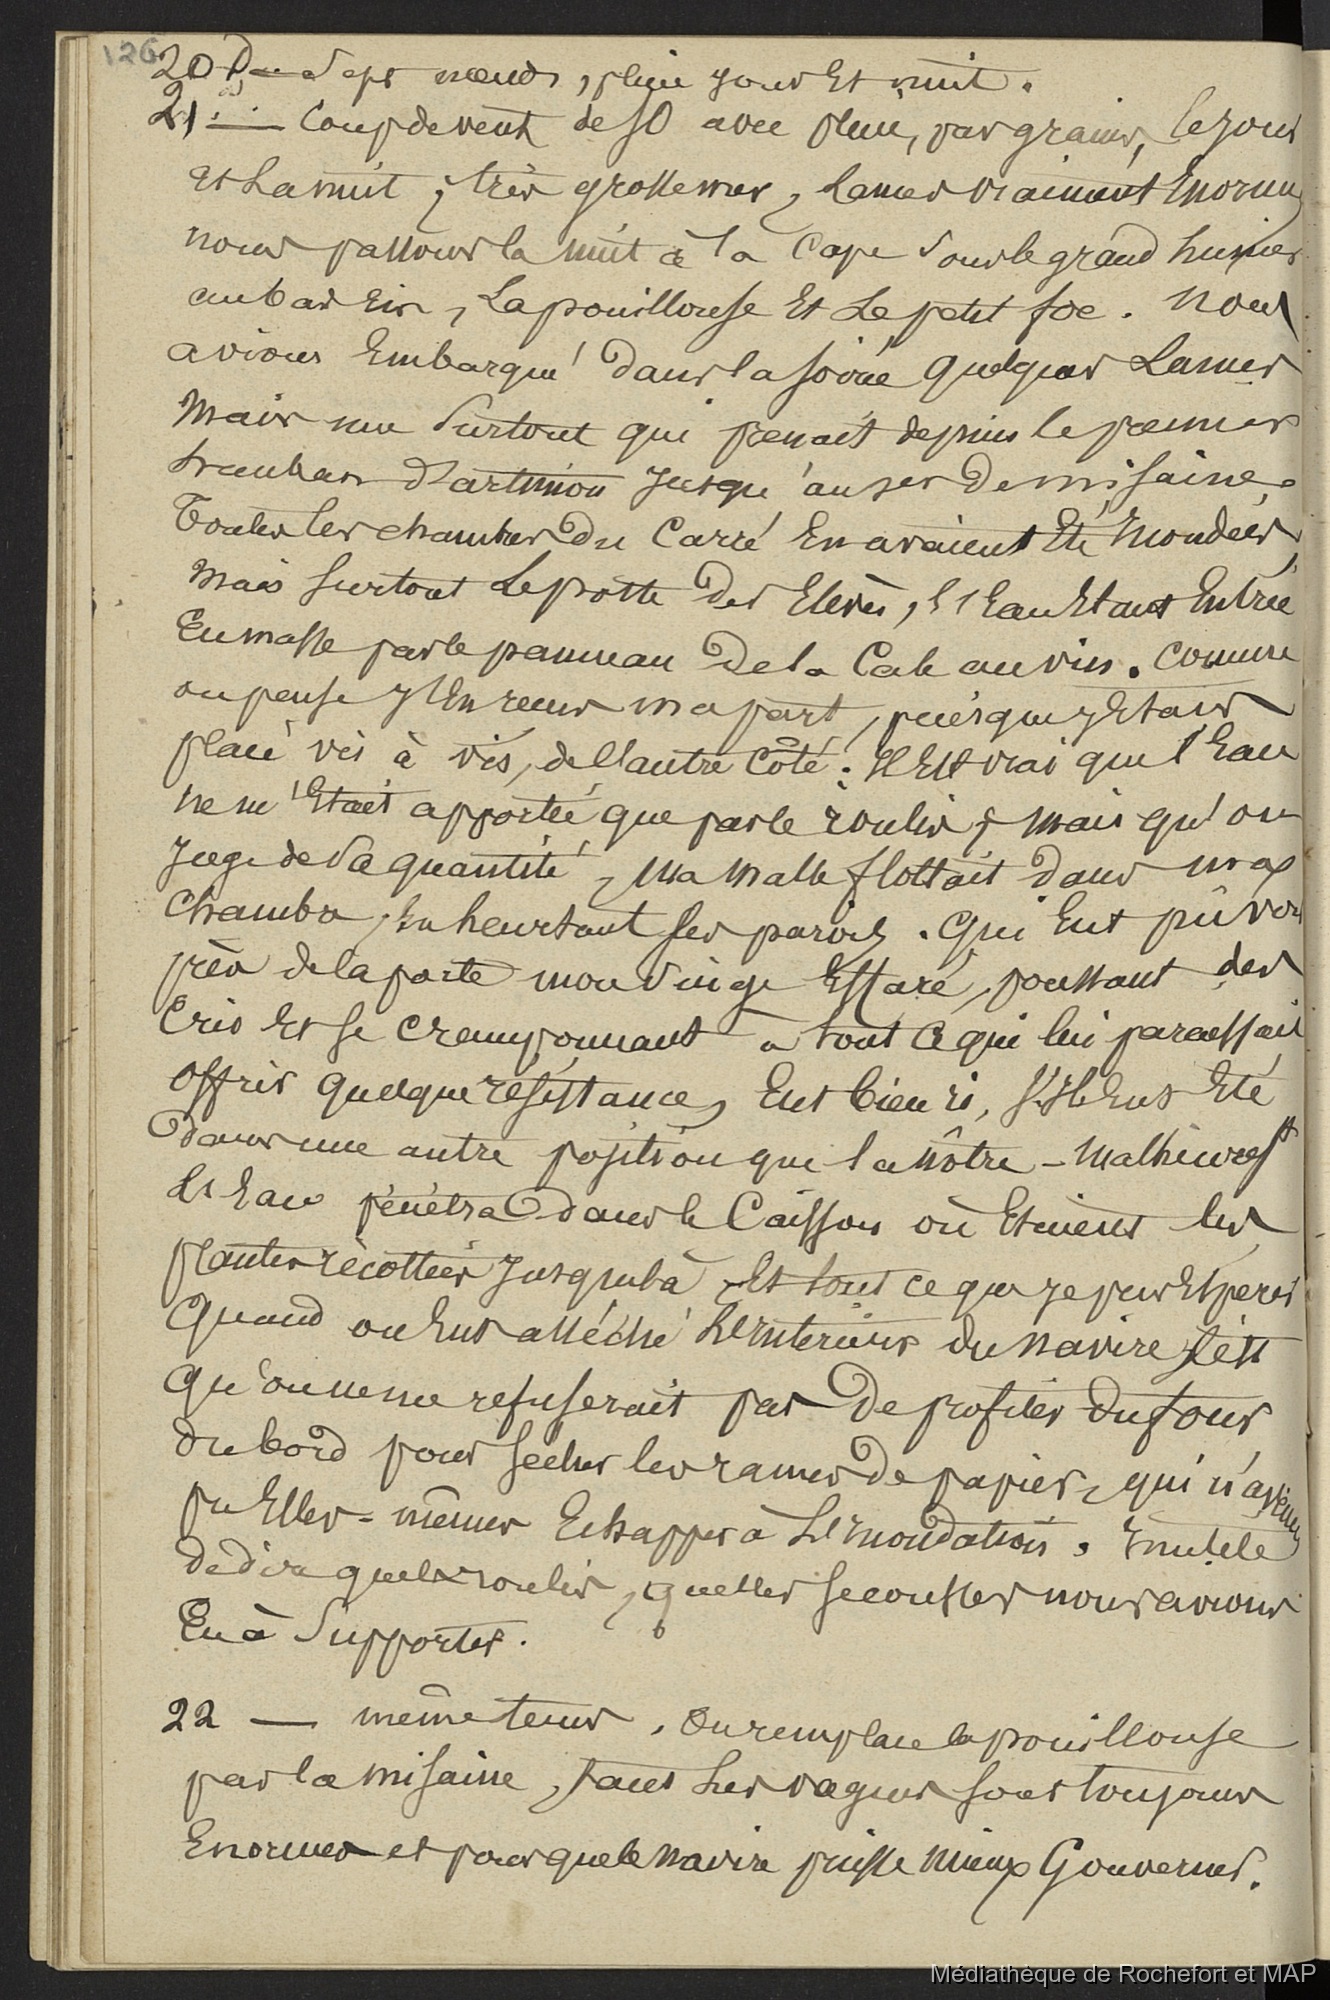 126
20 D — Sept nœuds, pluie jour et nuit.
21 — Coup de vent de SO avec pluie, par grains, le jour
et la nuit, très grosse mer, lames vraiment Enormes
nous passons la nuit à la Cape sous le grand hunier
au bas ris, La pouillouse Et Le petit foc. Nous
avions Embarqué dans la soirée quelques Lames
Mais une surtout qui prenait depuis le premier
hauban d'artimon jusqu'au ser De misaine.
Toutes les chambres Du Carré En avaient Eté Inondées,
Mais surtout Le poste Des Elèves, l'Eau Etant Entrée
En masse par le panneau De la Cale au vin. Comme
on pense j'En reçus ma part, puisque j'Etais
placé vis à vis, de l'autre côté. Il Est vrai que l'Eau
ne m'Etait apportée que par le roulis, Mais qu'on
juge de sa quantité, Ma Malle flottait dans ma
Chambre, En heurtant ses parois. Qui Eut pû voir
près de la porte mon singe Effaré, poussant des
Cris Et se cramponnant à tout ce qui lui paraissait
offrir quelque résistance, Eut bien ri, s'Il Eut Eté
dans une autre position que la nôtre — Malheureust
L'Eau pénétra dans le Caisson où Etaient les
plantes récoltées jusque là, Et tout ce que je pus Espérer
Quand on Eut asséché L'Intérieur du navire c'est
Qu'on ne me refuserait pas De profiter Du four
Du bord pour sécher les rames De papier, qui n'avaient
pu Elles-mêmes Echapper à L'Inondation. Inutile
de dire quels roulis, quelles secousses nous avions
Eu à supporter.
22 — même tems. On remplace la pouillouse
par la misaine, tant Les vagues sont toujours
Enormes et pour que le navire puisse Mieux Gouverner.
Médiathèque de Rochefort et MAP